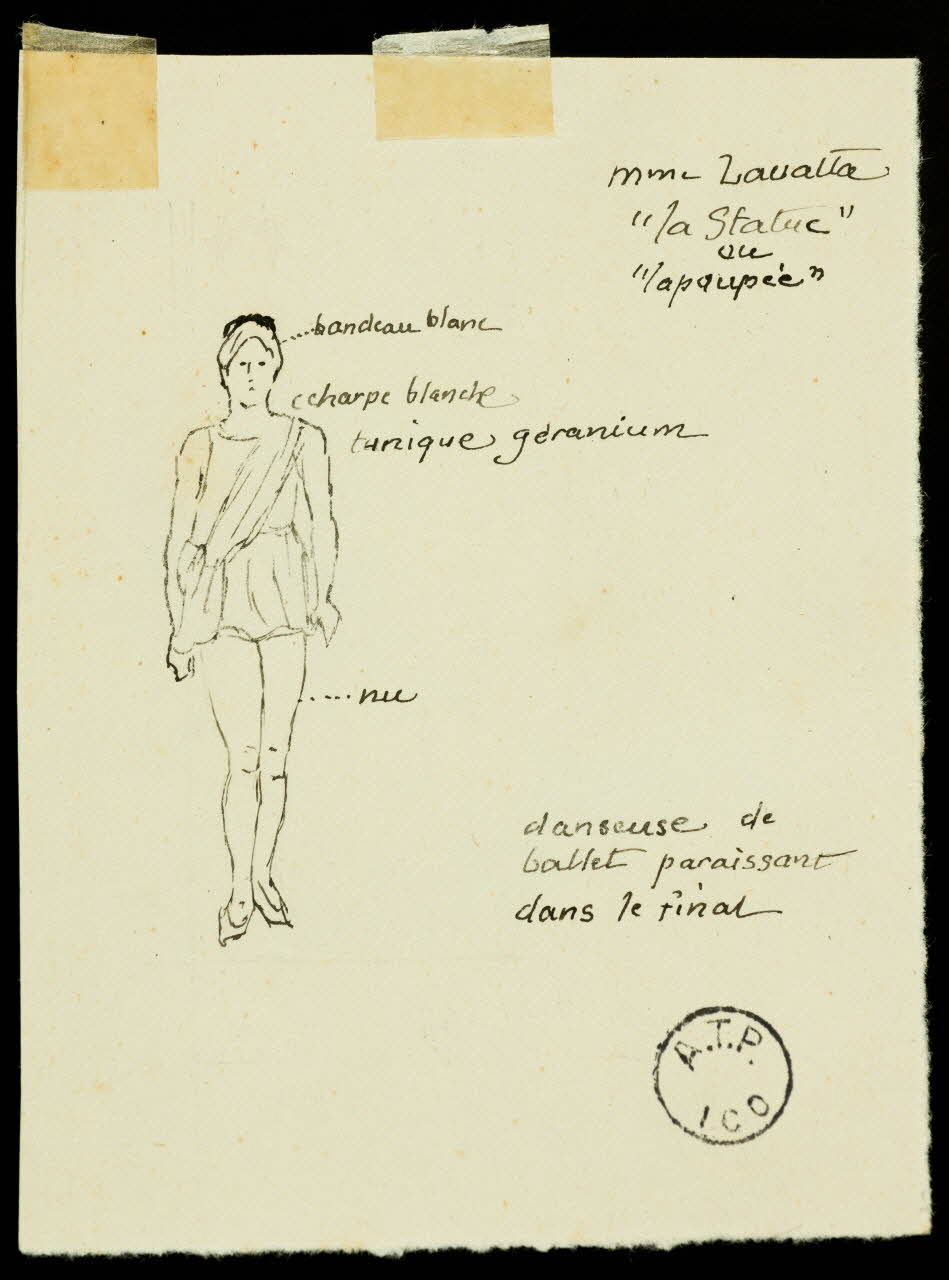 mme Zavatta
"la Statue"
ou
"la poupée"
bandeau blanc
echarpe blanche
tunique géranium
nu
danseuse de
ballet paraissant
dans le final
A.T.P.
ICO